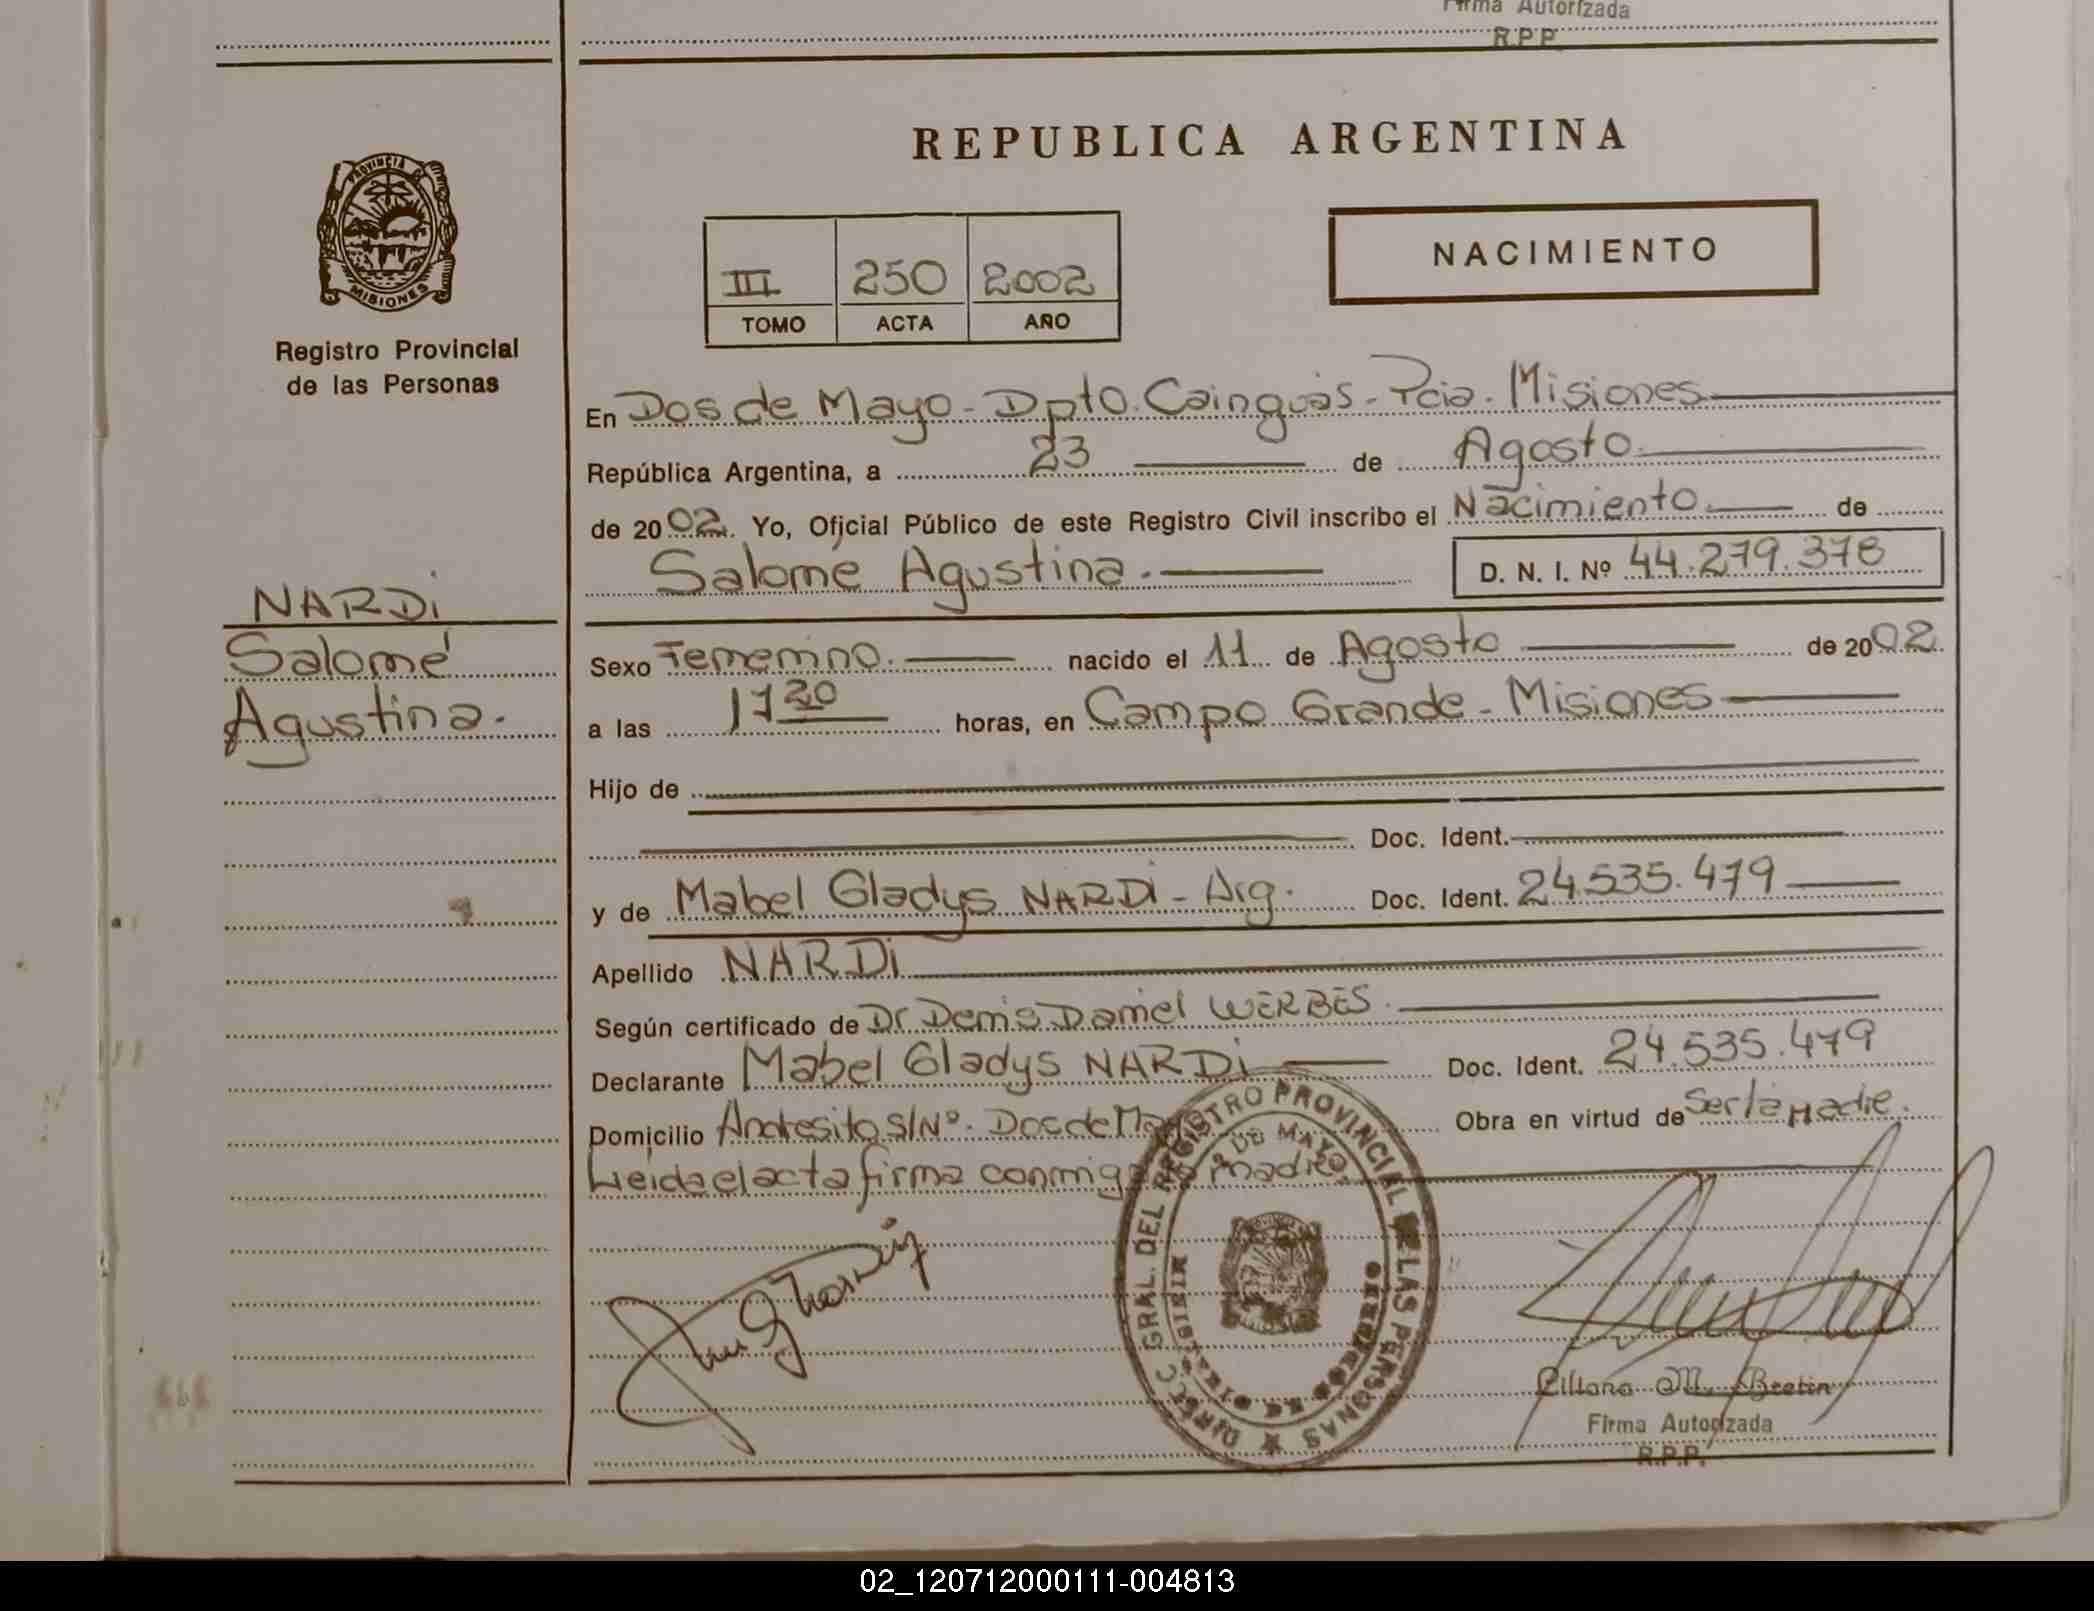 Firma Autorizada
R.P.P.
REPUBLICA ARGENTINA
PROVINCIA
MISIONES
Registro Provincial
de las Personas
NACIMIENTO
III 250 2002
TOMO ACTA AÑO
En Dos de Mayo - Dpto. Cainguás - Pcia. Misiones
República Argentina, a 23 de Agosto
de 2002. Yo, Oficial Público de este Registro Civil inscribo el Nacimiento de
Salomé Agustina. D. N. I. Nº 44.279.378
NARDi
Salomé
Agustina.
Sexo Femenino. nacido el 11 de Agosto de 2002.
a las 17 30 horas, en Campo Grande - Misiones
Hijo de
Doc. Ident.
y de Mabel Gladys NARDi - Arg. Doc. Ident. 24.535.479
Apellido NARDi
Según certificado de Dr Denis Daniel WERBES.
Declarante Mabel Gladys NARDi Doc. Ident. 24.535.479
Domicilio Andresito S/Nº. Dos de Mayo Obra en virtud de Ser la Madre.
Leída el acta firma conmigo la madre
DIRECC GRAL. DEL REGISTRO PROVINCIAL DE LAS PERSONAS
2 DE MAYO
Liliana M. Bretin
Firma Autorizada
R.P.P.
02_120712000111-004813